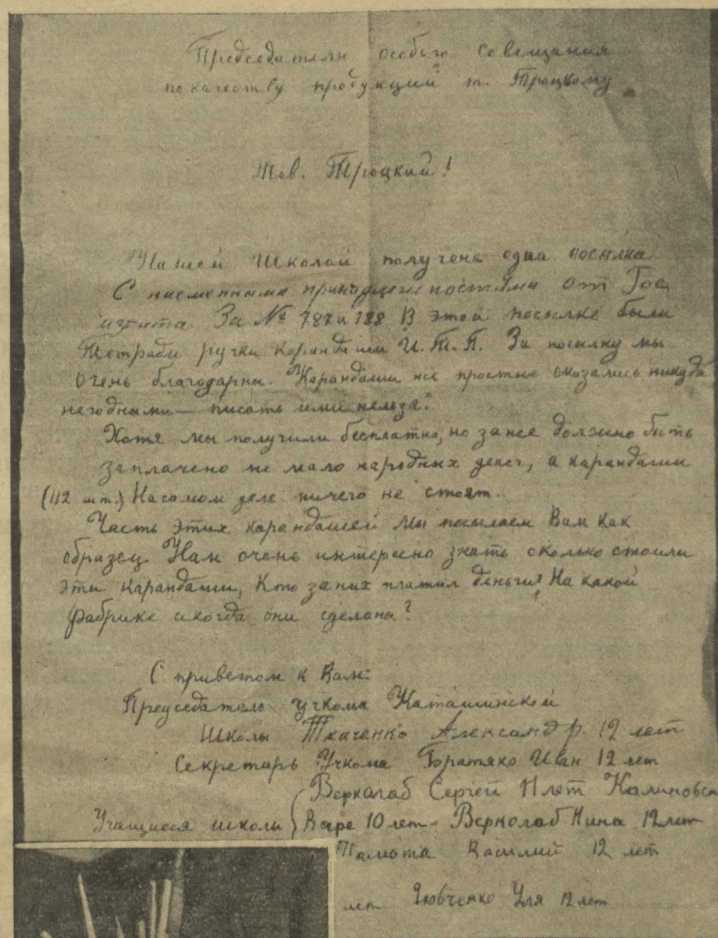 Председателю особого совещания
по качеству продукции т. Троцкому
Тов. Троцкий!
Нашей Школой получена одна посылка
С писменными принадлежностями от Гос
издата. За № 787 и 788 В этой посылке были
Тетради ручки карандаши И.Т.П. За посылку мы
очень благодарны. Карандаши же простые оказались никуда
негодными — писать ими нельзя.
Хотя мы получили бесплатно, но за нее должно быть
заплачено не мало народных денег, а карандаши
(112 шт.) На самом деле ничего не стоят.
Часть этих карандашей мы посылаем Вам как
образец Нам очень интересно знать сколько стоили
эти карандаши, Кто за них платил деньги? На какой
фабрике и когда они сделаны?
С приветом к Вам:
Председатель учкома Каташинской
Школы Ткаченко Александр. 12 лет
Секретарь Учкома Иван 12 лет
Верколаб Сергей 11 лет
Учащиеся школы Варе 10 лет — Верколаб Нина 12 лет
Василий 12 лет
лет Уля 12 лет